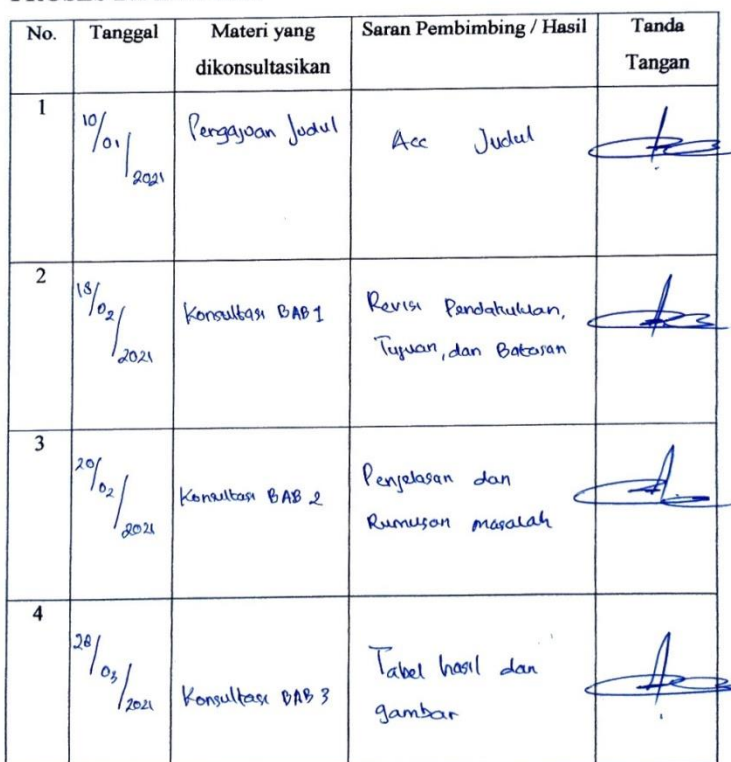 No. Tanggal Materi yang Saran Pembimbing / Hasil Tanda
dikonsultasikan Tangan
1 10/01/2021 Pengajuan Judul Acc Judul
2 18/02/2021 Konsultasi BAB 1 Revisi Pendahuluan,
Tujuan, dan Batasan
3 20/02/2021 Konsultasi BAB 2 Penjelasan dan
Rumusan masalah
4 28/03/2021 Konsultasi BAB 3 Tabel hasil dan
gambar